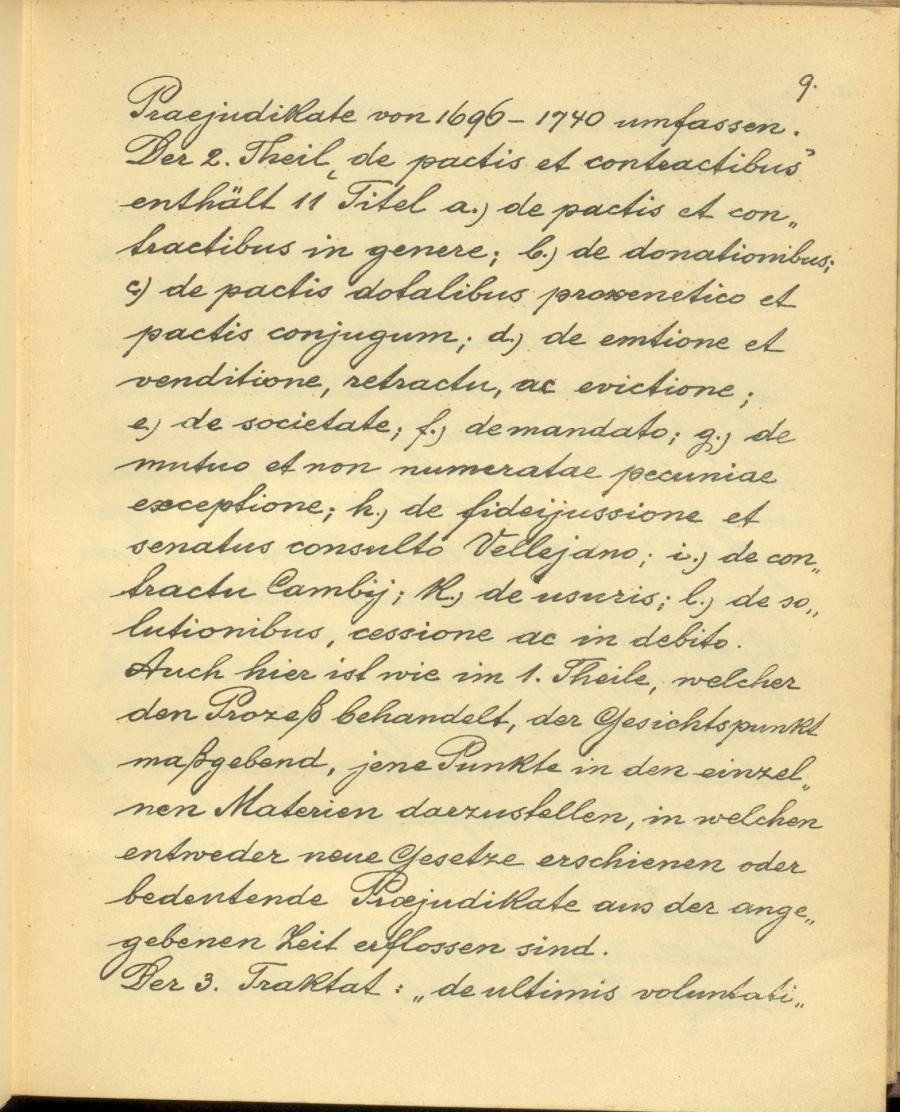 9.
Praejudikate von 1696 – 1740 umfassen.
Der 2. Theil „de pactis et contractibus"
enthält 11 Titel a.) de pactis et con„
tractibus in genere; b.) de donationibus;
c.) de pactis dotalibus proxenetico et
pactis conjugum; d.) de emtione et
venditione, retractu, ac evictione;
e.) de societate; f.) de mandato; g.) de
mutuo et non numeratae pecuniae
exceptione; h.) de fideijussione et
senatus consulto Vellejano; i.) de con„
tractu Cambij; k.) de usuris; l.) de so„
lutionibus, cessione ac in debito.
Auch hier ist wie im 1. Theile, welcher
den Prozeß behandelt, der Gesichtspunkt
maßgebend, jene Punkte in den einzel„
nen Materien darzustellen, in welchen
entweder neue Gesetze erschienen oder
bedeutende Præjudikate aus der ange„
gebenen Zeit erflossen sind.
Der 3. Traktat: „de ultimis voluntati„